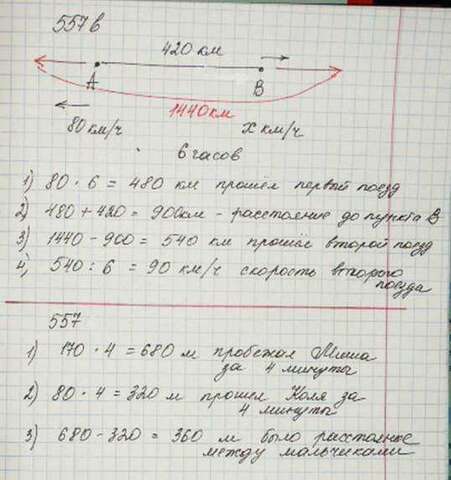 557 в
420 км
А
В
1440 км
80 км/ч
х км/ч
6 часов
1) 80 · 6 = 480 км прошёл первый поезд
2) 480 + 420 = 900 км - расстояние до пункта В
3) 1440 - 900 = 540 км прошёл второй поезд
4) 540 : 6 = 90 км/ч скорость второго
поезда
557
1) 170 · 4 = 680 м пробежал Миша
за 4 минуты
2) 80 · 4 = 320 м прошел Коля за
4 минуты
3) 680 - 320 = 360 м было расстояние
между мальчиками